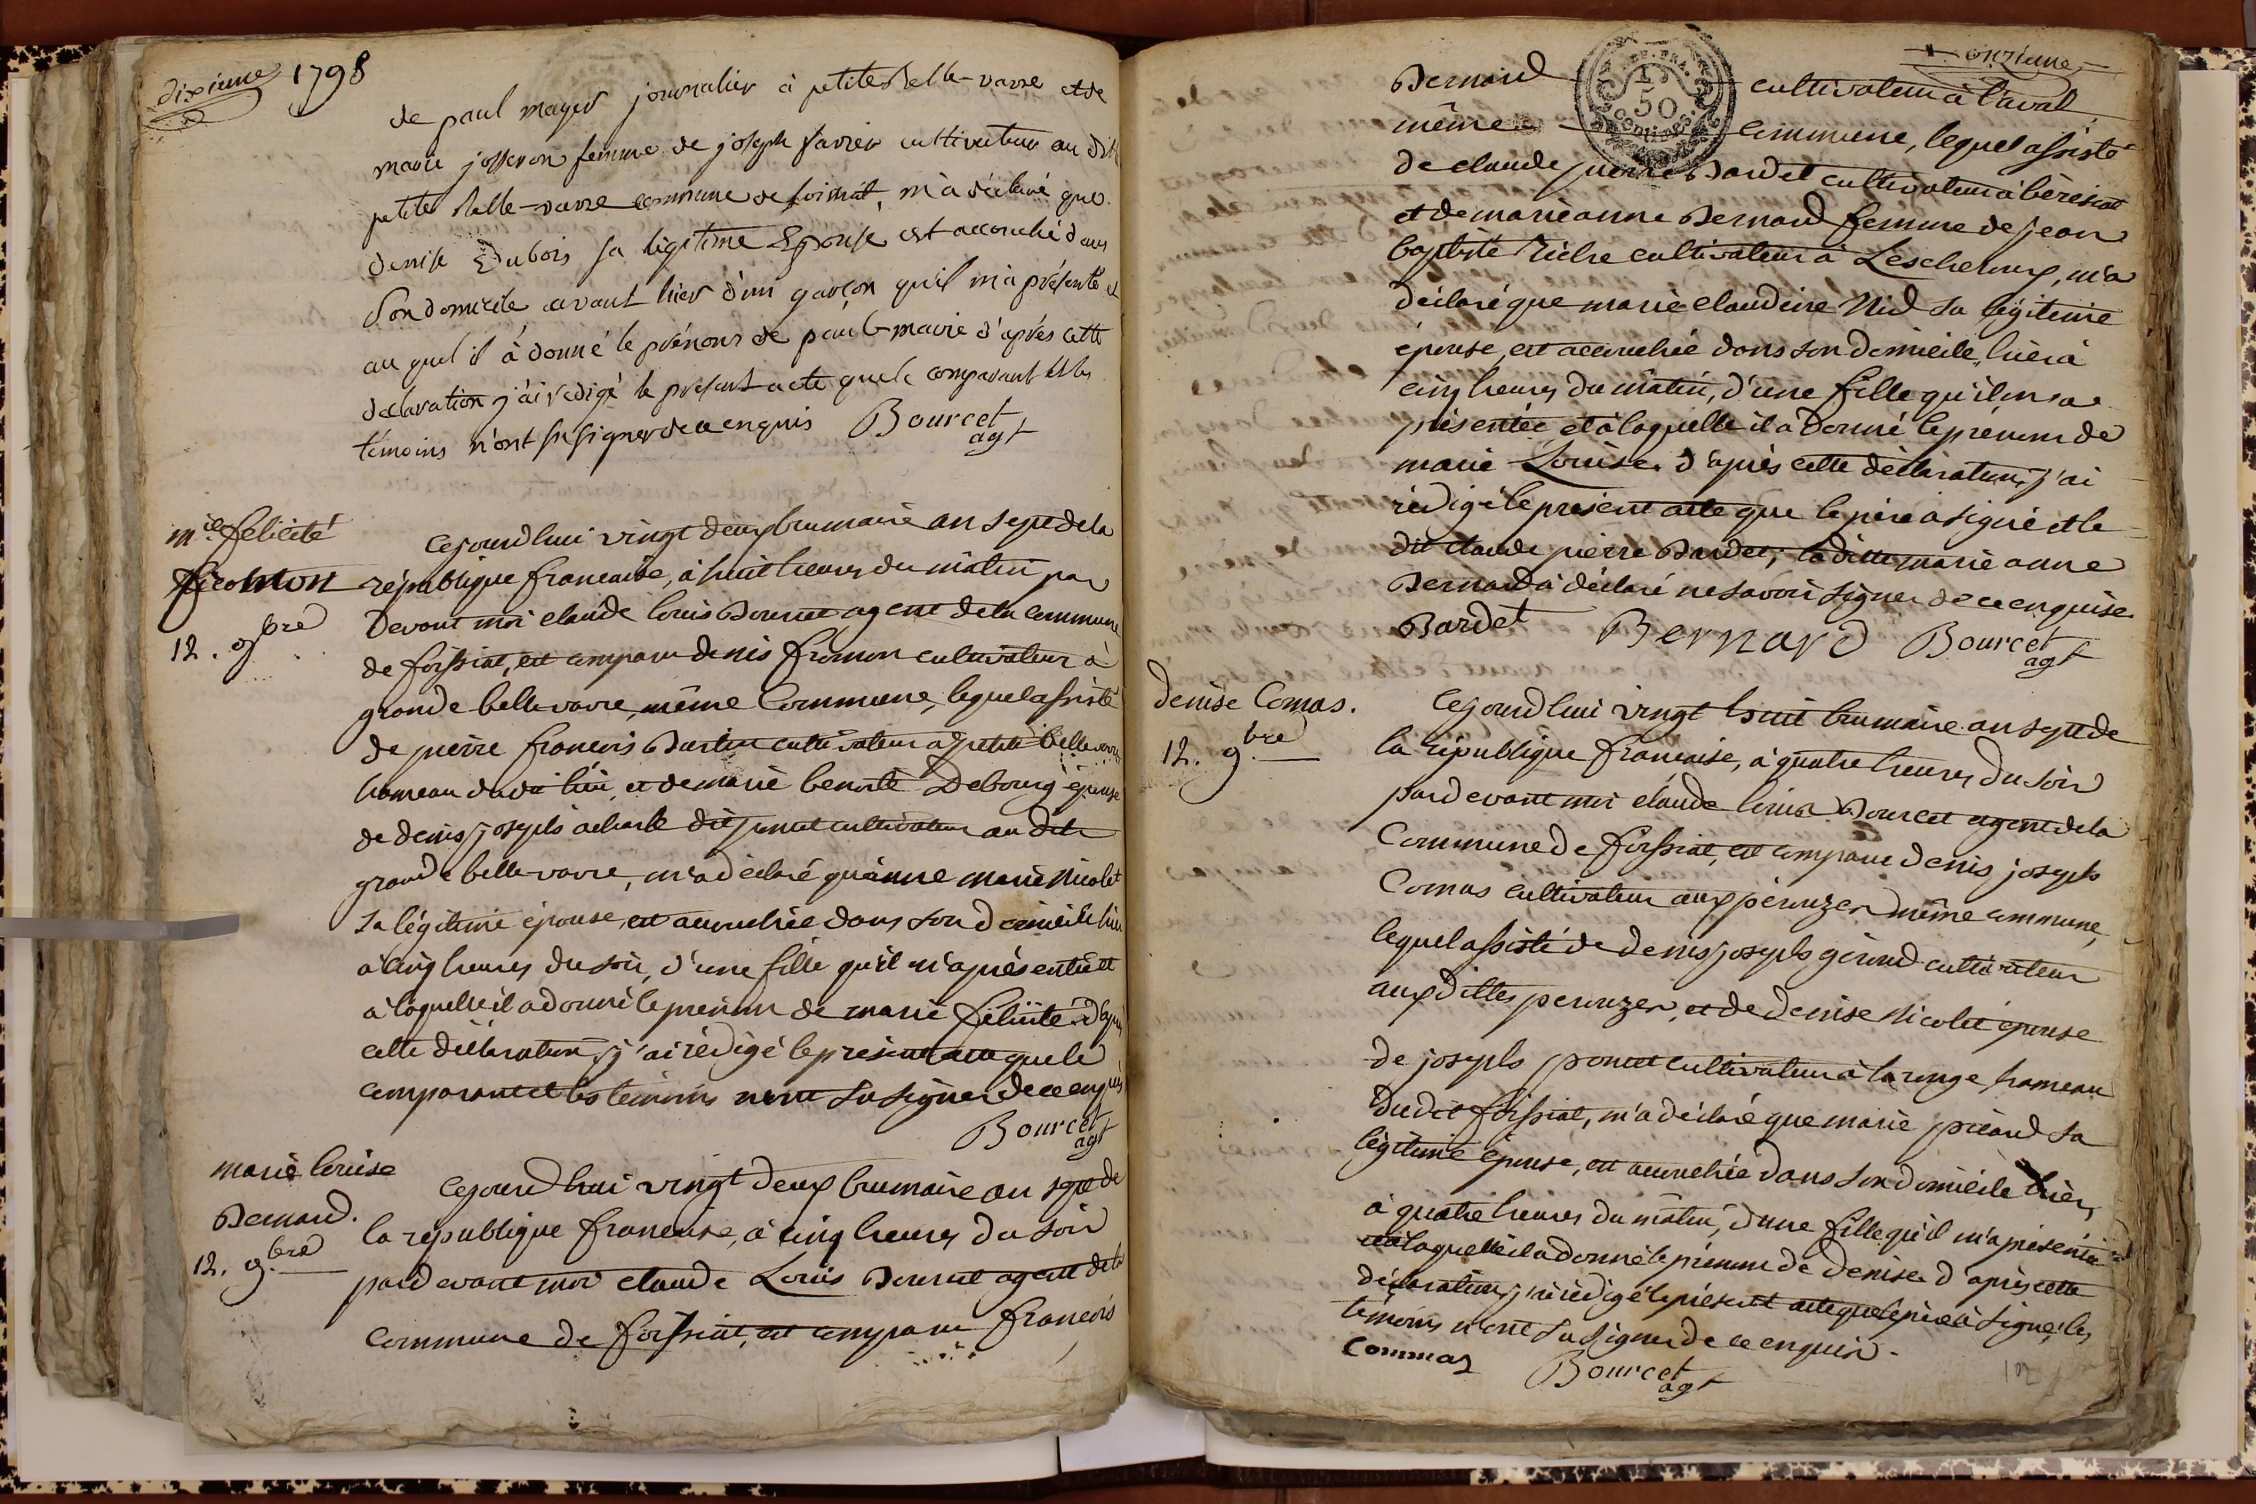 dixieme 1798
de paul mayer journalier à petite Belle-vavre et de
marie josseron femme de joseph favier cultivateur au dit
petite Belle-vavre commune de foissiat, m'a déclaré que
denise Dubois sa légitime Epouse est accouché dans
Son domicile avant hier d'un garçon qu'il m'a présenté et
au quel il à donné le prénoms de paul-marie d'après cette
declaration j'ai redigé le present acte que le comparant et les
témoins n'ont su signer de ce enquis Bourcet
agt
mie felicité
fromon
12. 9bre
Cejourdhui vingt deux brumaire an sept de la
république francaise, à huit heures du matin par
devant moi claude louis Bourcet agent de la commune
de foissiat, est comparu denis fromon cultivateur à
grande bellevavre, même Commune, lequel assisté
de pierre francois cultivateur a petite bellevavre
hameau dudit lieu, et de marie benoite Debourg épouse
de denis joseph dit poncet cultivateur au dit
grande bellevavre, m'a déclaré qu'anne marie Nicolet
sa légitime épouse, est accouchée dans son domicile hier
à cinq heures du soir, d'une fille qu'il m'a présentée et
à laquelle il a donné le prénom de marie félicité. d'après
cette déclaration, j'ai rédigé le présent acte que le
comparant et les témoins n'ont su signer de ce enquis
Bourcet
agt
marie louise
Bernard.
12. 9bre
Cejourd'hui vingt deux brumaire an sept de
la république francaise, à cinq heures du soir
pardevant moi claude Louis Bourcet agent de la
commune de foissiat, est comparu francois
onzieme
Bernard cultivateur à l'aval
même commune, lequel assisté
de claude pierre Bardet cultivateur à béresiat
et de marie anne Bernard femme de jean
baptiste Riche cultivateur à Lescheroux, m'a
déclaré que marie claudine Nid sa légitime
épouse, est accouchée dans son domicile, hier à
cinq heures du matin, d'une fille qu'il m'a
présentée et à laquelle il a donné le prénom de
marie Louise. d'après cette déclaration, j'ai
rédigé le présent acte que le père a signé et le
dit claude pierre Bardet, la ditte marie anne
Bernard à déclaré ne savoir signer de ce enquise
Bardet Bernard Bourcet
agt
denise Comas.
12. 9bre
Cejourdhui vingt huit brumaire an sept de
la république francaise, à quatre heures du soir
pardevant moi claude louis Bourcet agent de la
Commune de foissiat, est comparu denis joseph
Comas cultivateur aux perouzes même commune,
lequel assisté de denis joseph giroud cultivateur
aux dittes perouzes, et de denise Nicolet épouse
de joseph poncet cultivateur à la ronge hameau
dudit foissiat, m'a déclaré que marie picard sa
légitime épouse, est accouchée dans son domicile hier
à quatre heures du matin, d'une fille qu'il m'a présentée
et à laquelle il a donné le prénom de denise. d'après cette
déclaration, j'ai rédigé le présent acte que le père à signé, les
témoins n'ont su signer de ce enquis.
Commas Bourcet
agt